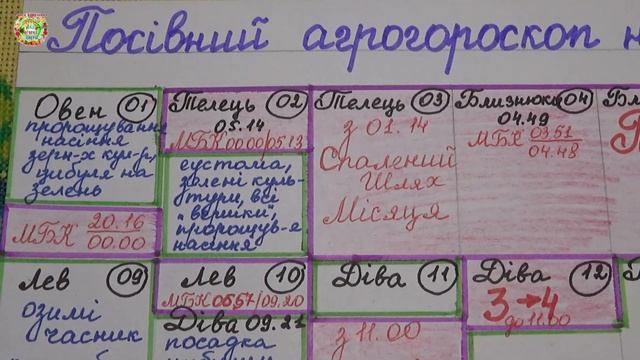 Посівний агрогороскоп н
Овен 01
пророщування
насіння
зерн-х кул-р,
цибуля на
зелень
МБК 20.16
00.00
Телець 02
05.14
МБК 00.00/05.13
еустома,
зелені куль-
тури, всі
"вершки",
пророщув-я
насіння
Телець 03
з 01.14
Спалений
Шлях
Місяця
Близнюки 04
04.49
МБК 03.51
04.48
Бл
Лев 09
озимі
часник
Лев 10
МБК 05.57/09.20
Діва 09.21
посадка
Діва 11
з 11.00
Діва 12
3→4
до 11.00